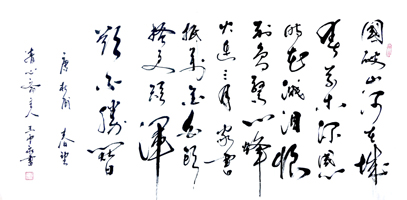 國破山河在城
春草木深感
時花濺泪恨
别鳥驚心烽
火連三月家書
抵萬金白頭
搔更短渾
欲不勝簪
唐杜甫春望